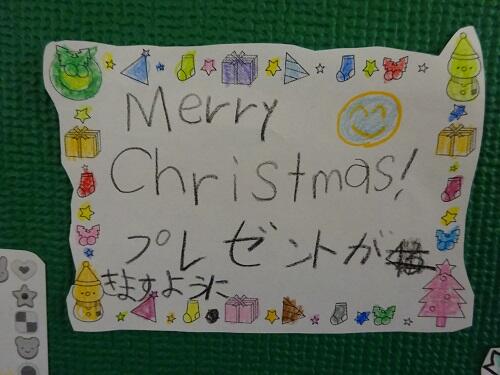 Merry
Christmas!
プレゼントが
きますように